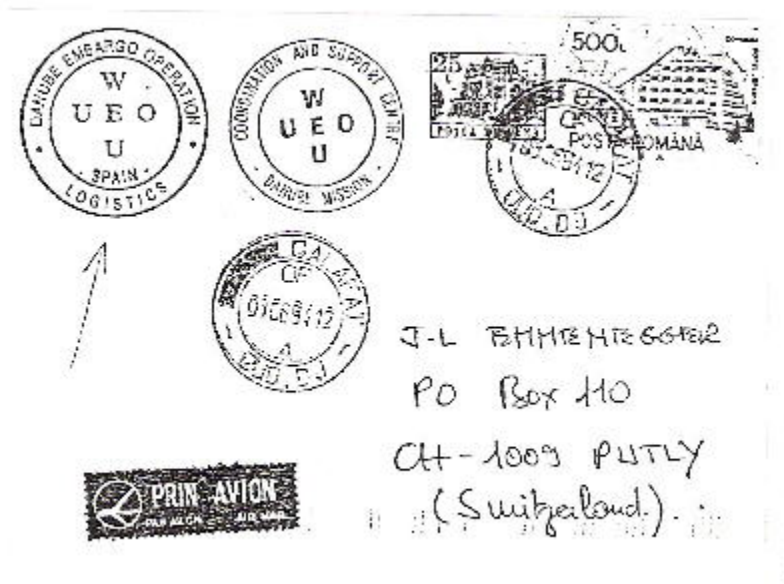 DANUBE EMBARGO OPERATION
W
U E O
U
- SPAIN -
LOGISTICS
COORDINATION AND SUPPORT CENTRE
W
U E O
U
- DANUBE MISSION -
25
POSTA ROMANA
500L
POSTA ROMÂNĂ
CALAFAT
OF
A
JUD. DJ
CALAFAT
OF
A
JUD. DJ
J-L EMMENEGGER
PO Box 110
CH-1009 PULLY
(Switzerland).
PRIN AVION
PAR AVION AIR MAIL